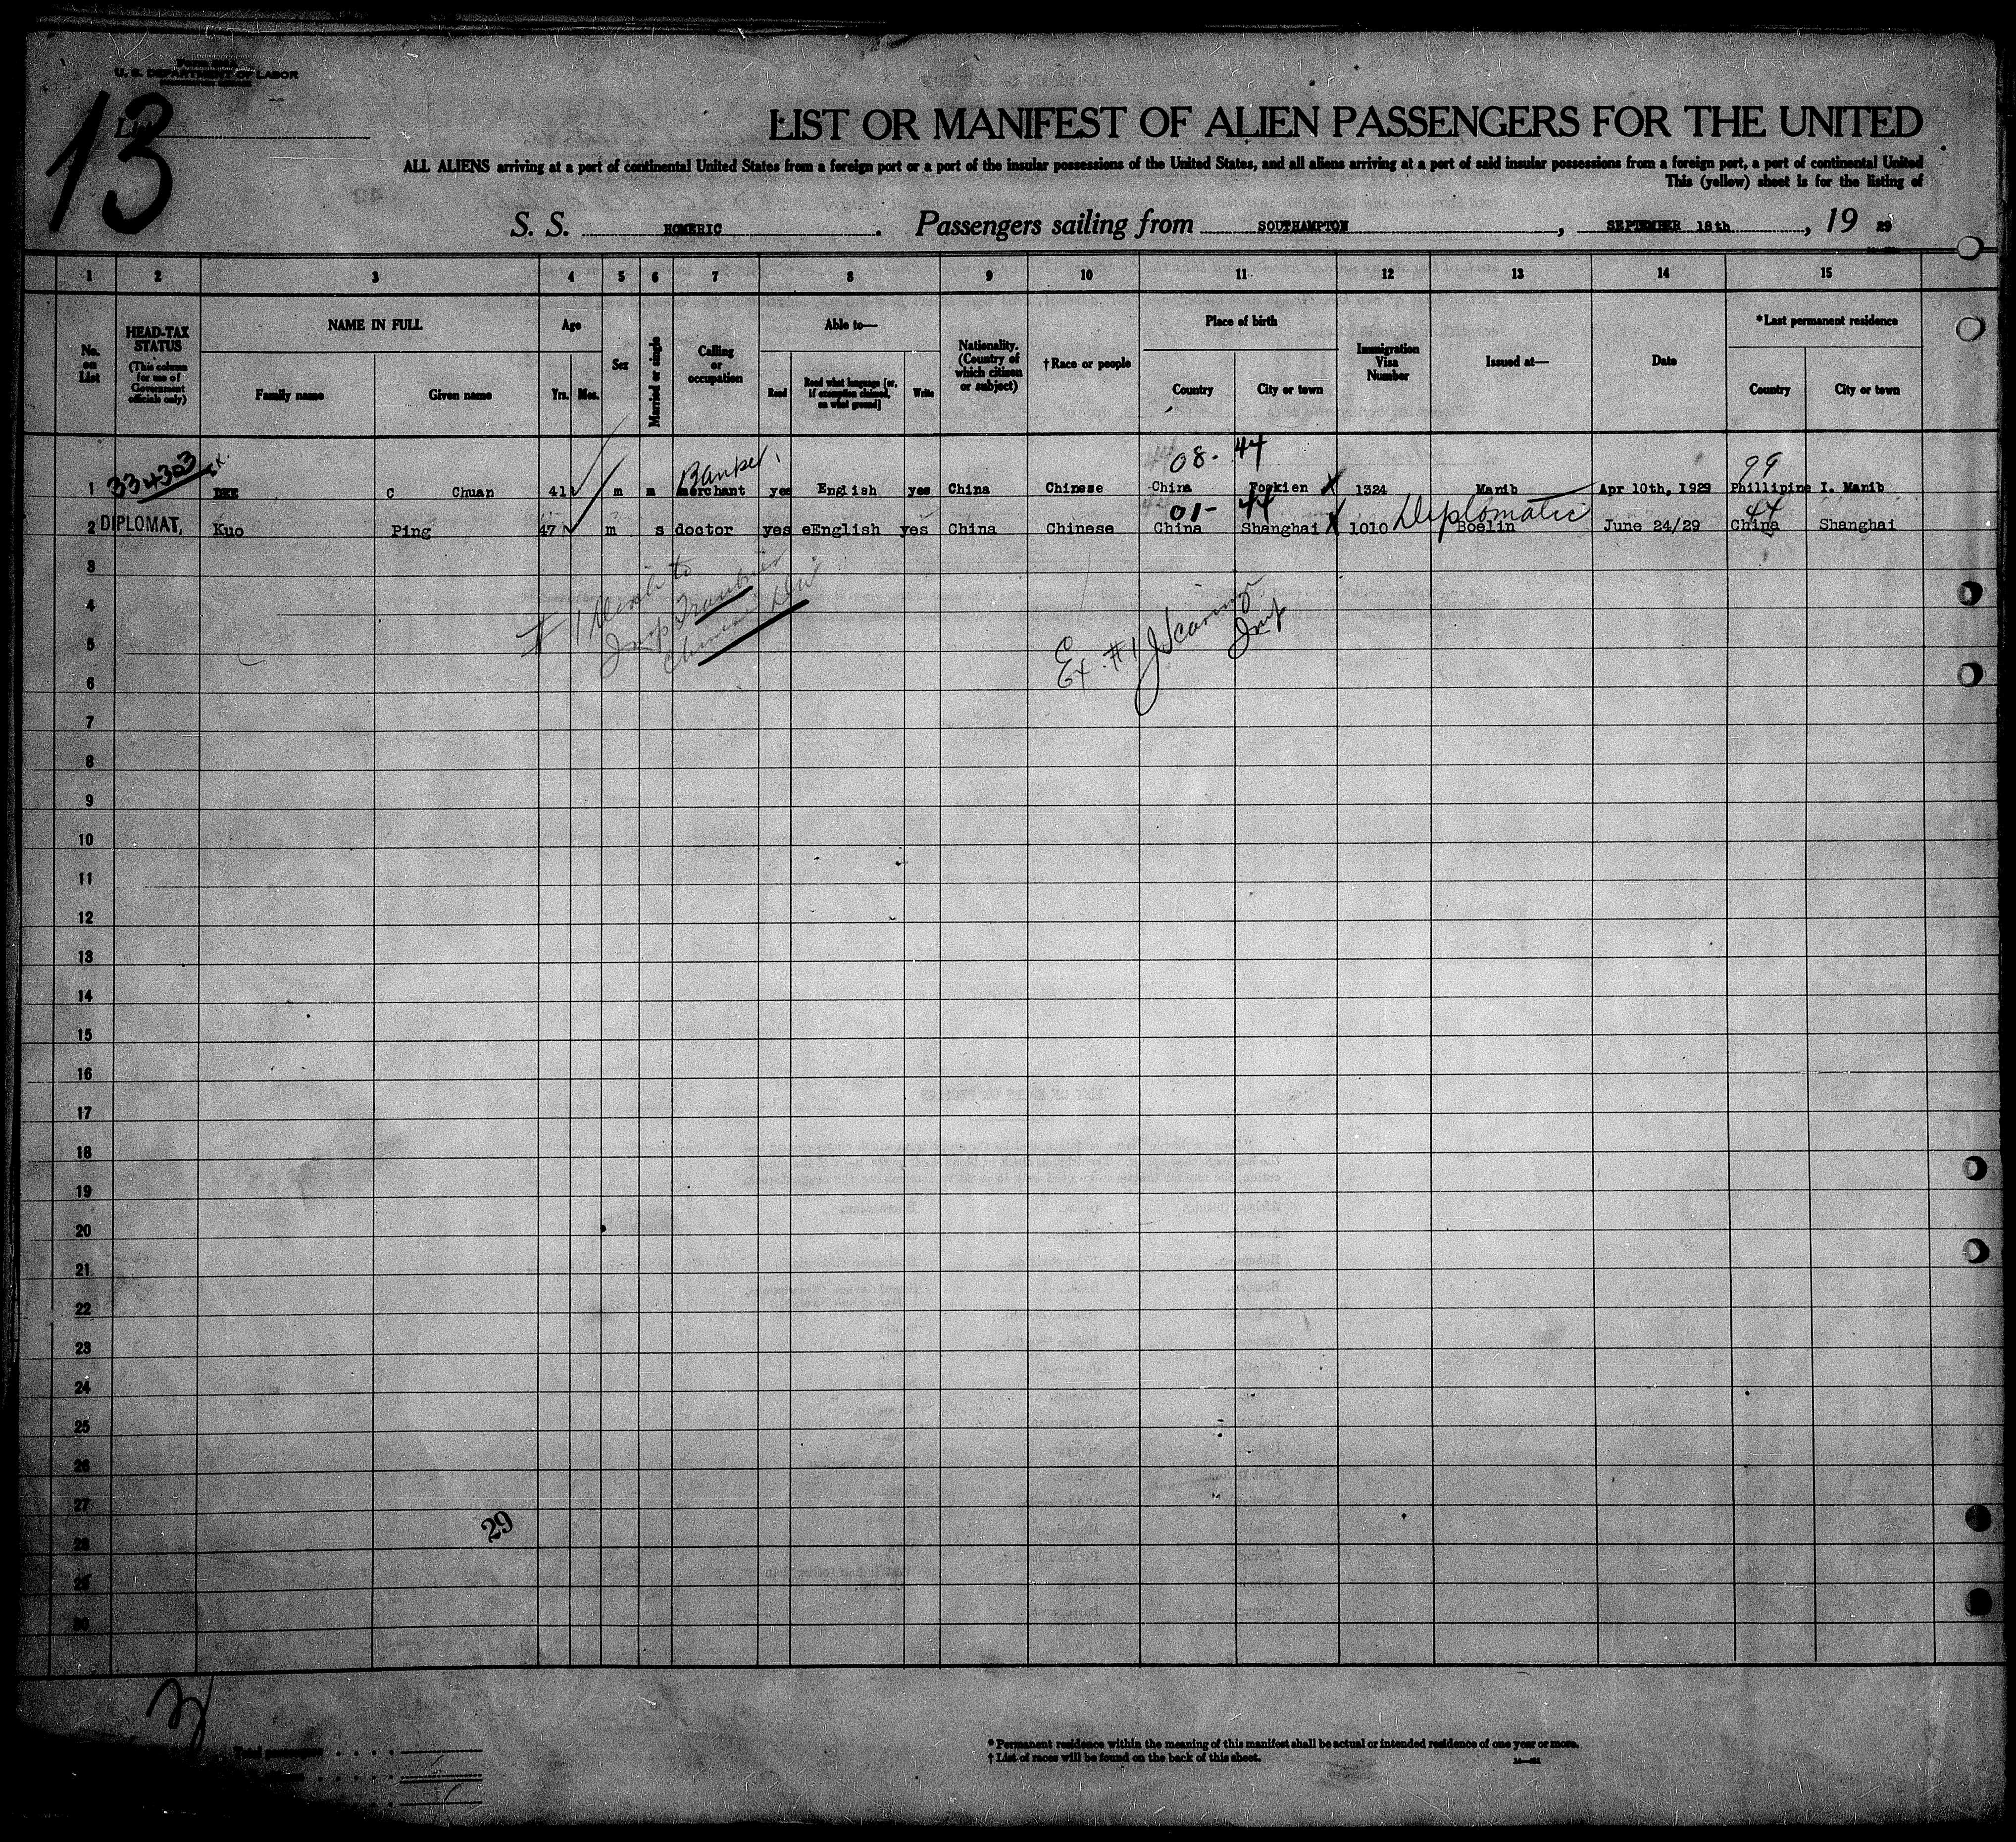 U. S. DEPARTMENT OF LABOR
List
13
LIST OR MANIFEST OF ALIEN PASSENGERS FOR THE UNITED
ALL ALIENS arriving at a port of continental United States from a foreign port or a port of the insular possessions of the United States, and all aliens arriving at a port of said insular possessions from a foreign port, a port of continental United
This (yellow) sheet is for the listing of
S. S. HOMERIC. Passengers sailing from SOUTHAMPTON, SEPTEMBER 18th, 19 29
1 2 3 4 5 6 7 8 9 10 11 12 13 14 15
No. on List
HEAD-TAX STATUS (This column for use of Government officials only)
NAME IN FULL
Family name Given name
Age
Yrs. Mos.
Sex
Married or single
Calling or occupation
Able to—
Read Read what language [or, if exemption claimed, on what ground] Write
Nationality. (Country of which citizen or subject)
†Race or people
Place of birth
Country City or town
Immigration Visa Number
Issued at—
Date
*Last permanent residence
Country City or town
334303 Banker, 08- 44 99
1 DEE C Chuan 41 m m merchant yes English yes China Chinese China Fookien X 1324 Manib Apr 10th, 1929 Phillipine I. Manib
01- 44 Diplomatic 44
2 DIPLOMAT, Kuo Ping 47 m s doctor yes eEnglish yes China Chinese China Shanghai X 1010 Boelin June 24/29 China Shanghai
3
4
5
# 1
Ex. #1
6
7
8
9
10
11
12
13
14
15
16
17
18
19
20
21
22
23
24
25
26
27
29
28
29
30
Total passengers
* Permanent residence within the meaning of this manifest shall be actual or intended residence of one year or more.
† List of races will be found on the back of this sheet.